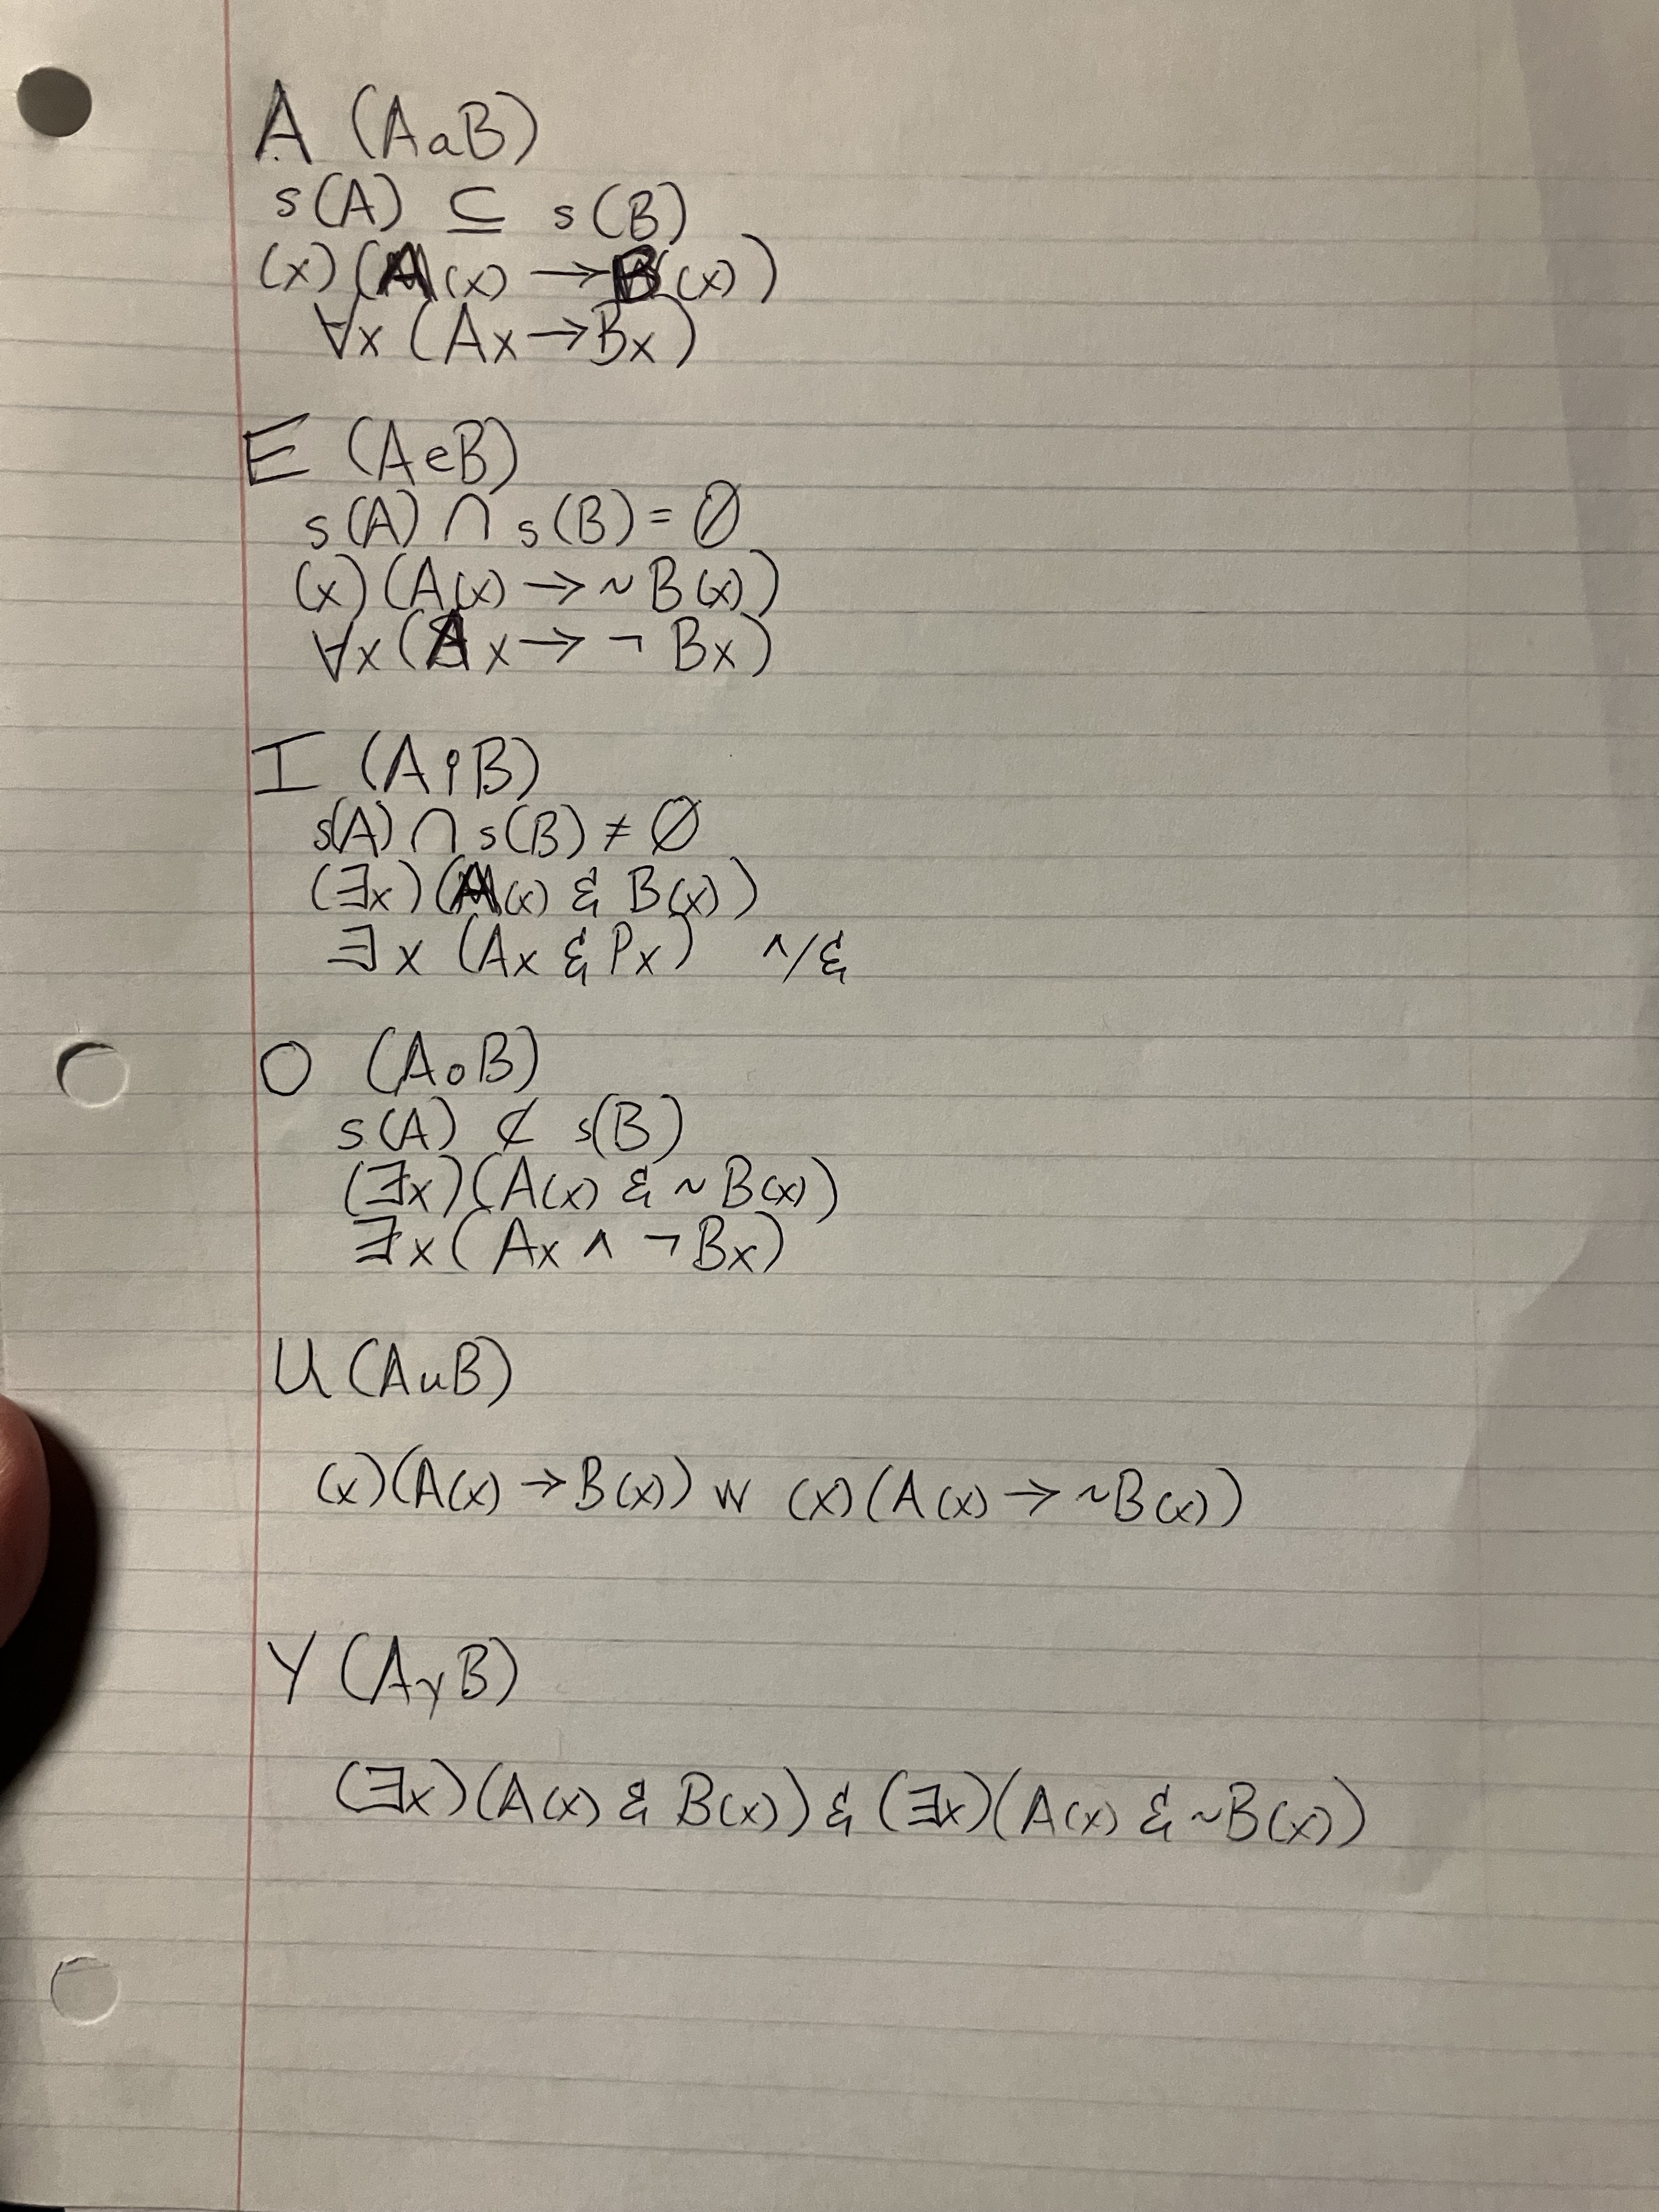 A (AaB)
s(A) ⊆ s(B)
(x)(A(x) → B(x))
∀x (Ax → Bx)
E (AeB)
s(A) ∩ s(B) = ∅
(x)(A(x) → ~B(x))
∀x (Ax → ¬ Bx)
I (AiB)
s(A) ∩ s(B) ≠ ∅
(∃x)(A(x) & B(x))
∃x (Ax & Px) ∧/&
O (AoB)
s(A) ⊄ s(B)
(∃x)(A(x) & ~B(x))
∃x (Ax ∧ ¬Bx)
U (AuB)
(x)(A(x) → B(x)) w (x)(A(x) → ~B(x))
Y (AyB)
(∃x)(A(x) & B(x)) & (∃x)(A(x) & ~B(x))